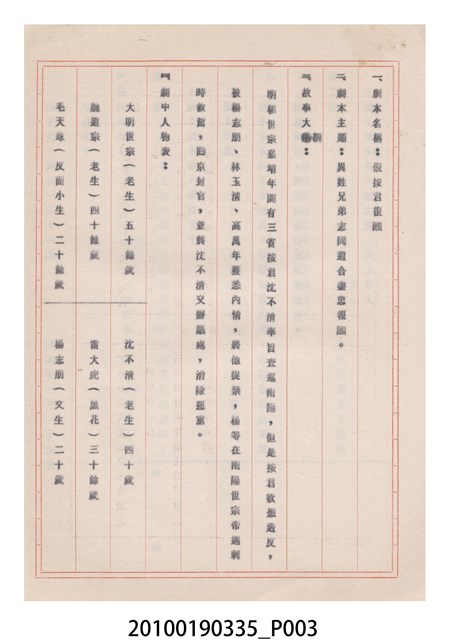 一、劇本名稱：假按君復國
二、劇本主題：異姓兄弟志同道合盡忠報國。
三、故事大綱：
明朝世宗嘉靖年間有三省按君沈不清奉旨查巡南陽，但是按君欲想造反，
被楊志朋、林玉清、高萬年獲悉內情，將他捉禁，楊等在南陽世宗帝遇刺
時救駕，回京封官，並將沈不清交辦議處，消除惡黨。
四、劇中人物表：
大明世宗(老生)五十餘歲
沈不清(老生)四十歲
魏道宗(老生)四十餘歲
雷大虎(黑花)三十餘歲
毛天雄(反面小生)二十餘歲
楊志朋(文生)二十歲
20100190335_P003